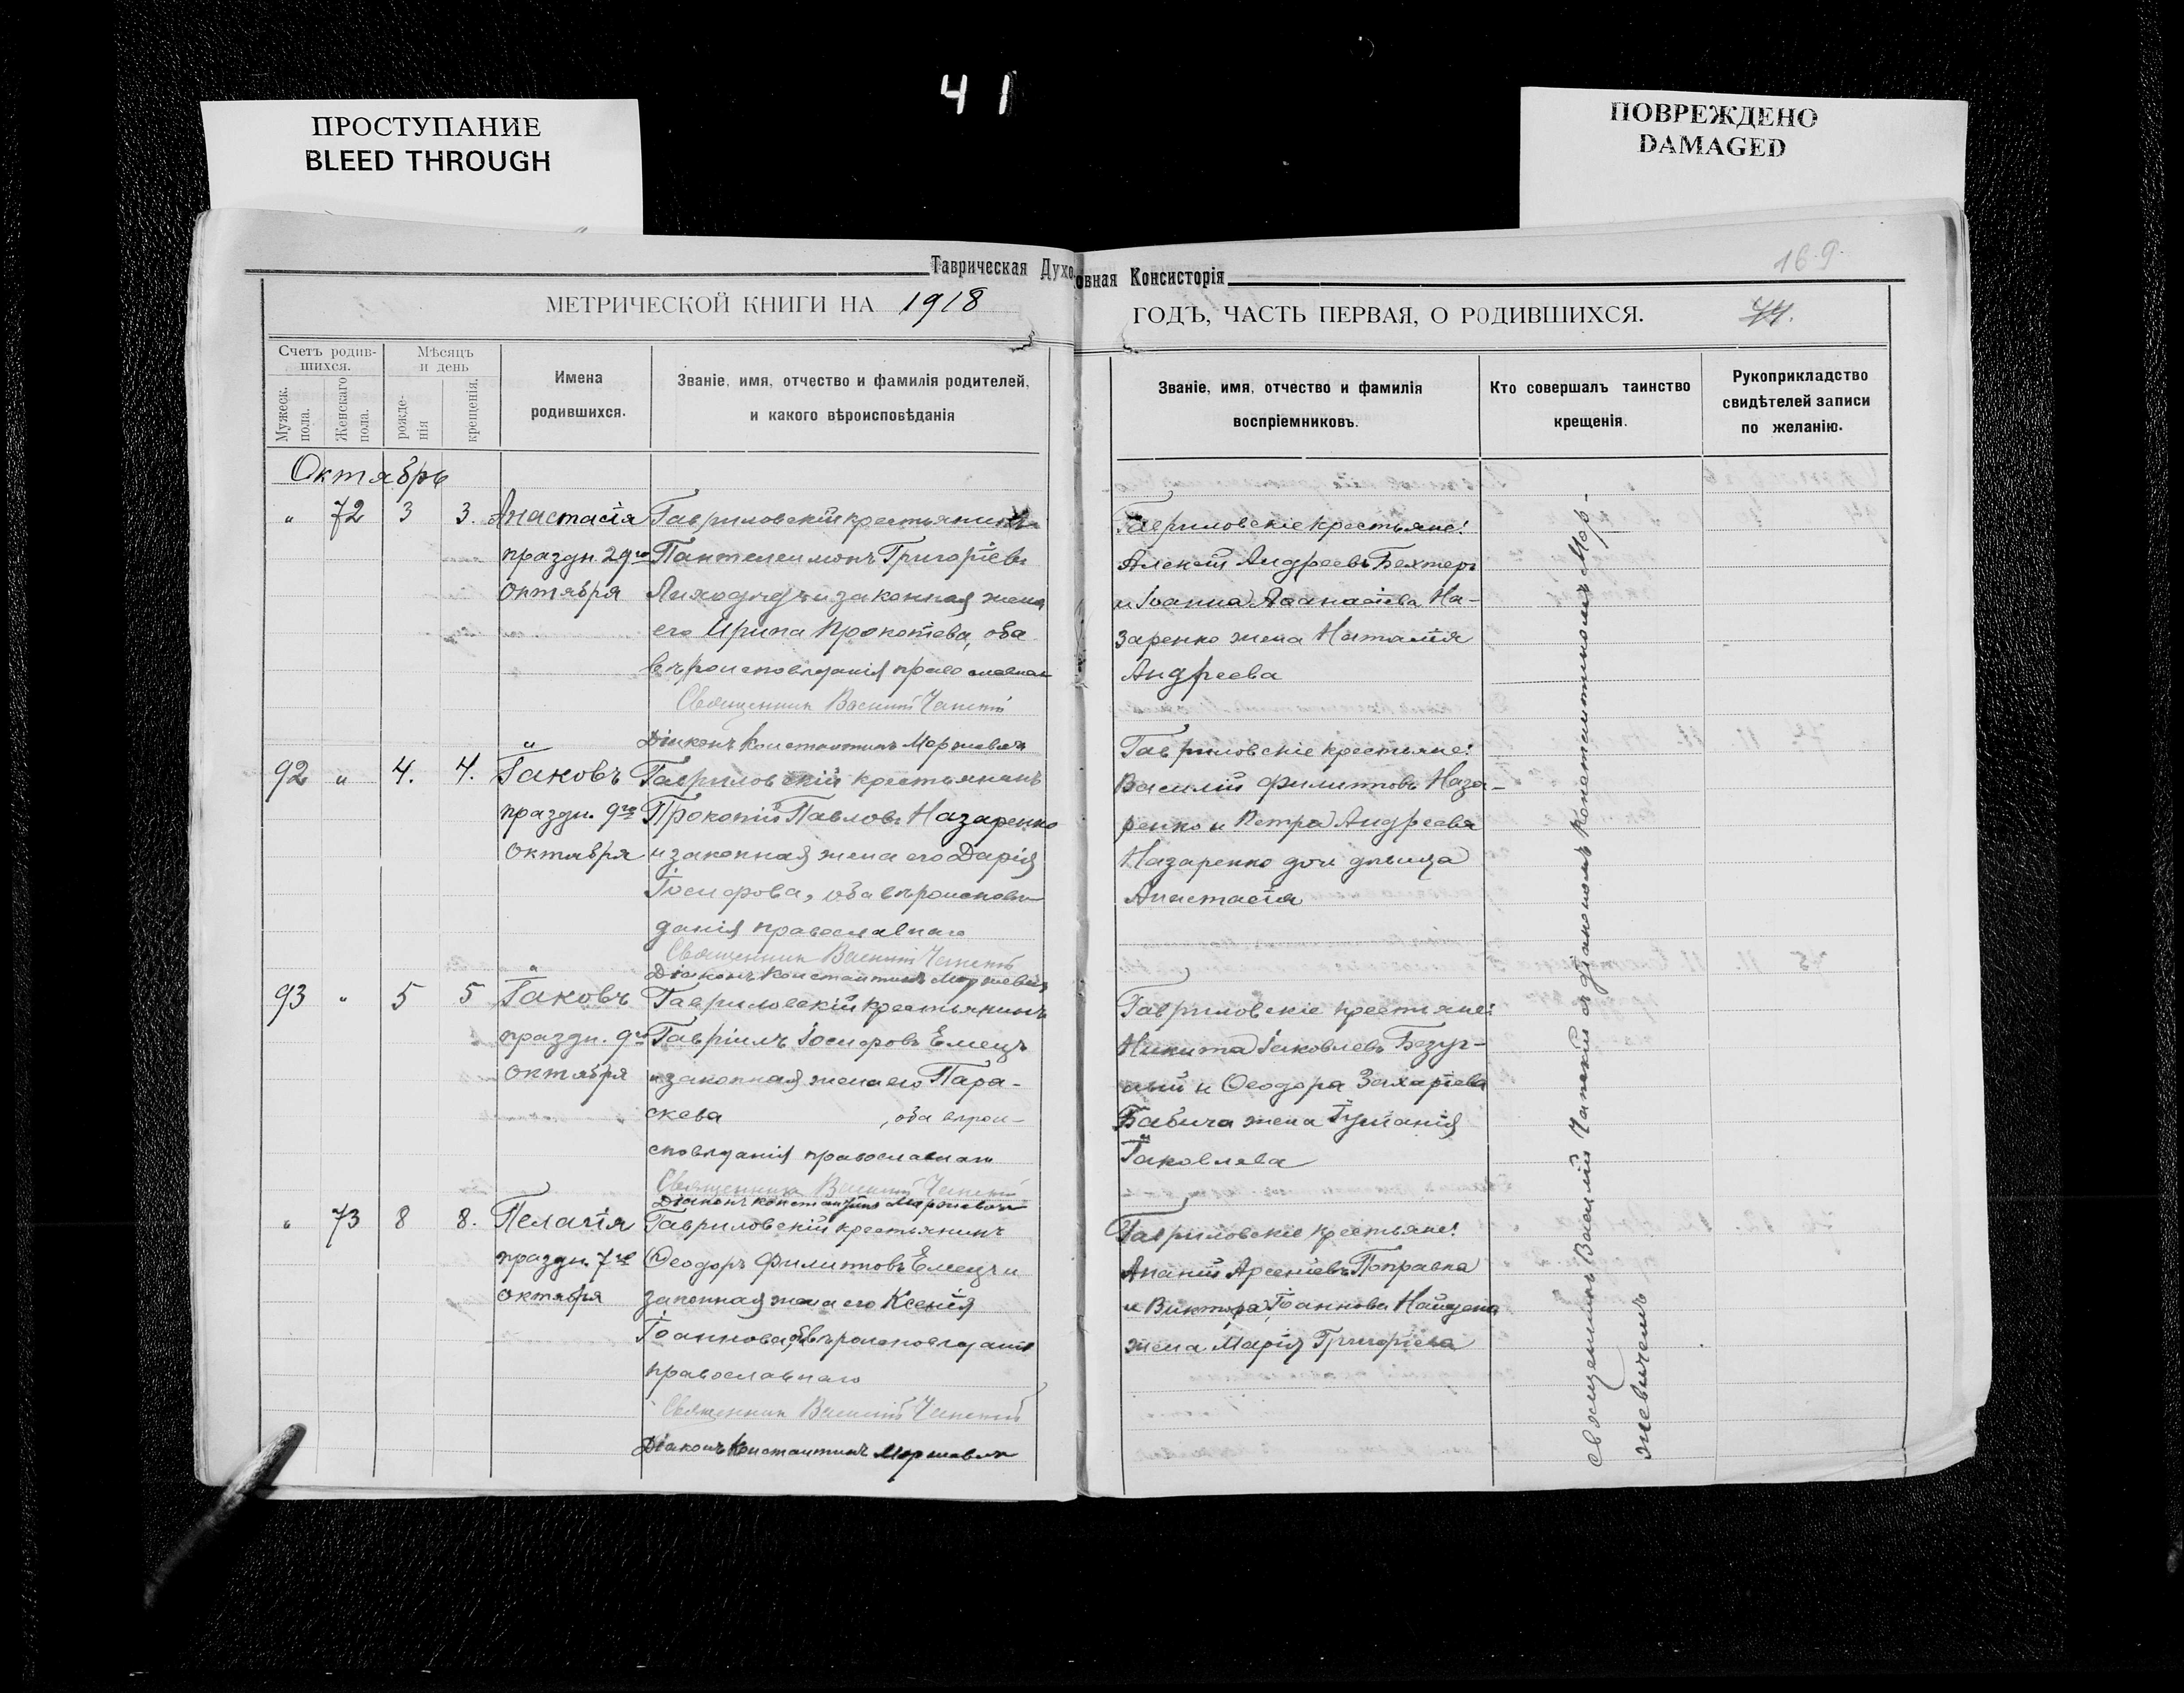 41
ПРОСТУПАНИЕ
BLEED THROUGH
ПОВРЕЖДЕНО
DAMAGED
Таврическая Духовная Консисторія
169.
МЕТРИЧЕСКОЙ КНИГИ НА 1918
ГОДЪ, ЧАСТЬ ПЕРВАЯ, О РОДИВШИХСЯ.
74.
Счетъ родив-
шихся.
Мужеск.
пола.
Женскаго
пола.
Мѣсяцъ
и день
рожде-
нія
крещенія.
Имена
родившихся.
Званіе, имя, отчество и фамилія родителей,
и какого вѣроисповѣданія
Званіе, имя, отчество и фамилія
воспріемниковъ.
Кто совершалъ таинство
крещенія.
Рукоприкладство
свидѣтелей записи
по желанію.
Октябрь
" 72 3 3. Анастасія Гавриловскій крестьянинъ
праздн. 29го Пантелеимонъ Григоріевъ
Октября Лиходѣдъ и законная жена
его Ирина Прокопіева, оба
вѣроисповѣданія православнаго
Священникъ Василій Чапскій
Діаконъ Константинъ Моржевичъ
Гавриловскіе крестьяне:
Алексій Андреевъ Бехтеръ
и Іоанна Аѳанасіева На-
заренко жена Наталія
Андреева
92 " 4. 4. Іаковъ Гавриловскій крестьянинъ
праздн. 9го Прокопій Павловъ Назаренко
Октября и законная жена его Дарія
Іосифова, оба вѣроисповѣ-
данія православнаго
Священникъ Василій Чапскій
Діаконъ Константинъ Моржевичъ
Гавриловскіе крестьяне:
Василій Филипповъ Наза-
ренко и Петра Андреева
Назаренко дочь дѣвица
Анастасія
93 " 5 5 Іаковъ Гавриловскій крестьянинъ
праздн. 9го Гавріилъ Іосифовъ Емецъ
Октября и законная жена его Пара-
скева , оба вѣрои-
сповѣданія православнаго
Священникъ Василій Чапскій
Діаконъ Константинъ Моржевичъ
Гавриловскіе крестьяне:
Никита Іаковлевъ Безуг-
лый и Ѳеодора Захаріева
Бабича жена Іуліанія
Іаковлева
" 73 8 8. Пелагія Гавриловскій крестьянинъ
праздн. 7го Ѳеодоръ Филипповъ Емецъ и
Октября законная жена его Ксенія
Іоаннова, оба вѣроисповѣданія
православнаго
Священникъ Василій Чапскій
Діаконъ Константинъ Моржевичъ
Гавриловскіе крестьяне:
Ананій Арсеніевъ Поправка
и Виктора Іоаннова Найдена
жена Марія Григоріева
священникъ Василій Чапскій съ діакономъ Константиномъ Мор-
жевичемъ